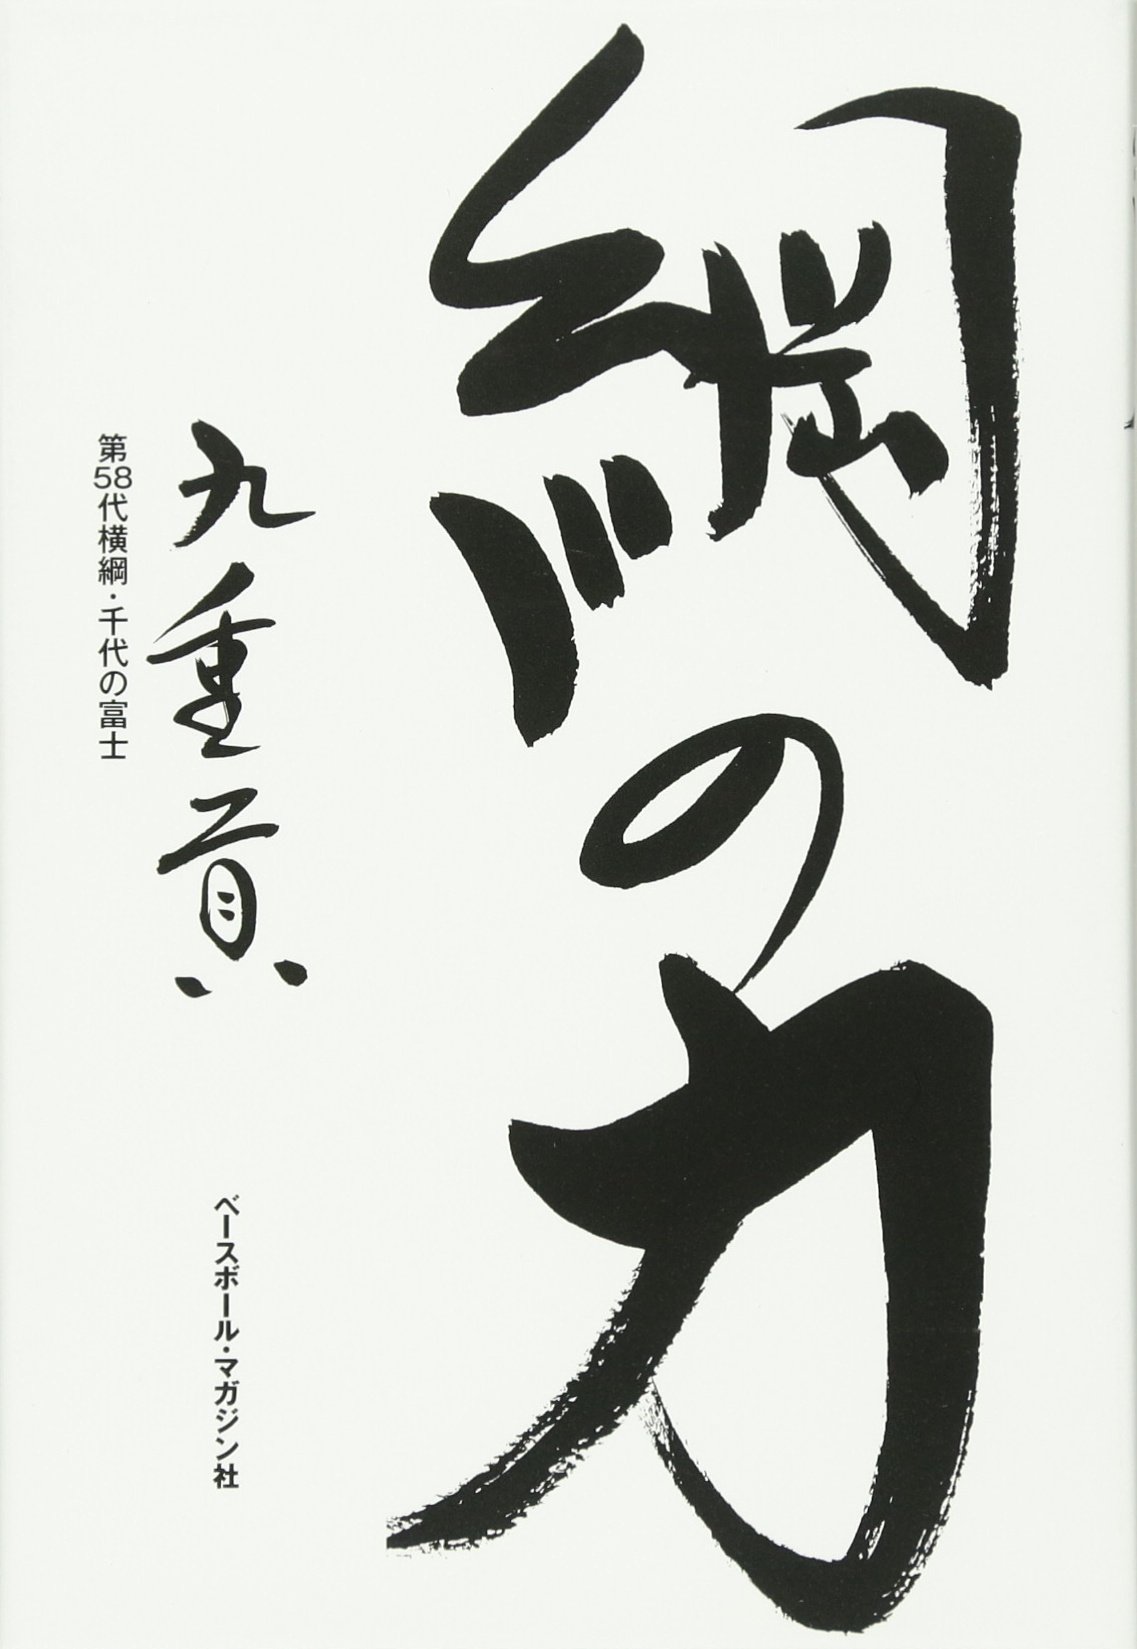 綱の力
九重貢
第58代横綱・千代の富士
ベースボール・マガジン社